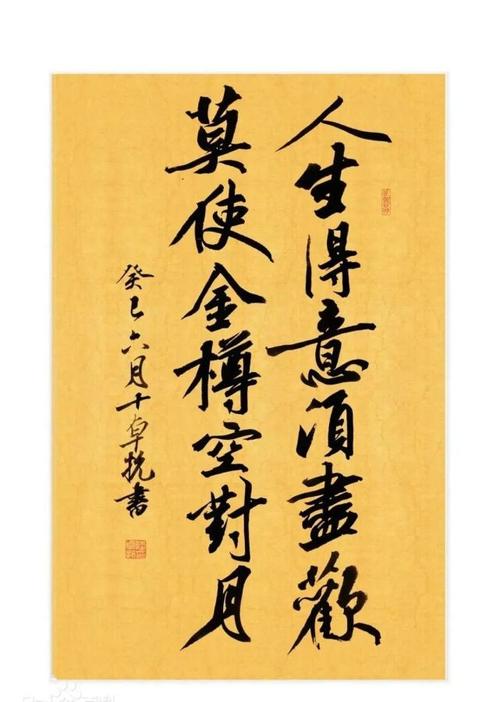 人生得意須盡歡
莫使金樽空對月
癸巳六月千卓挽書